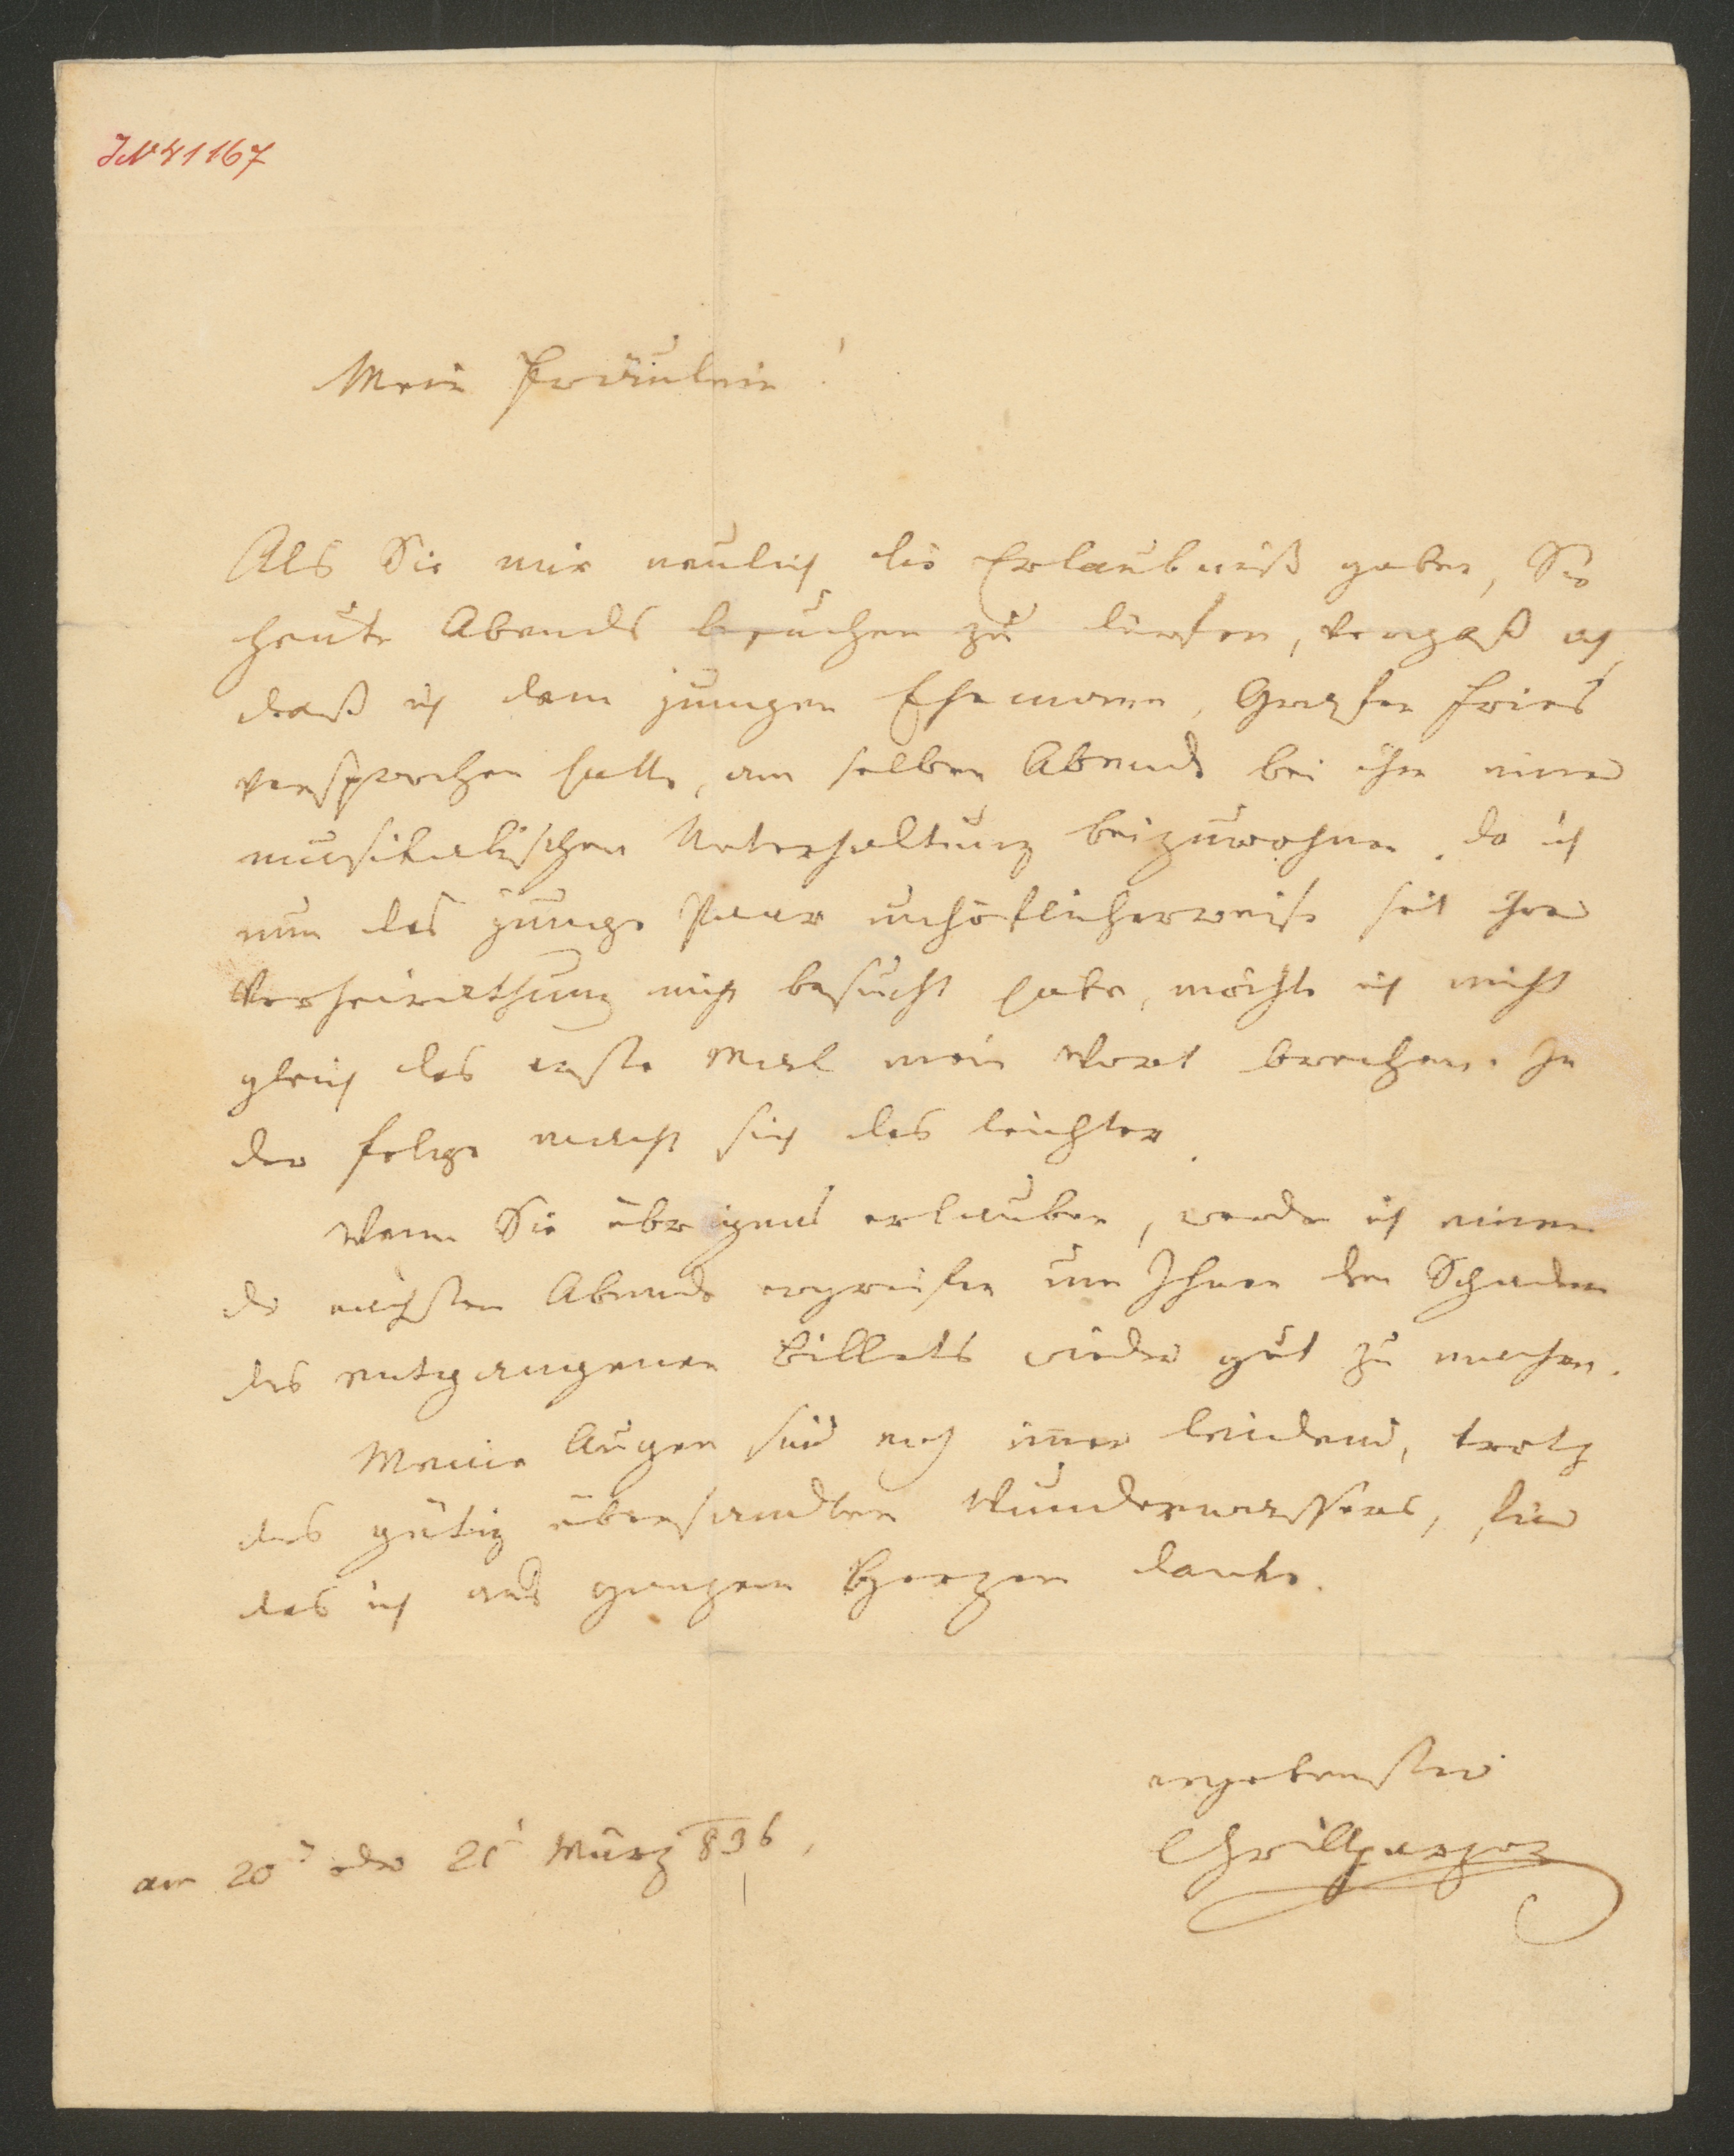 JN 41167
Mein Fräulein!
Als Sie mir neulich die Erlaubniß gaben, Sie
heute Abends besuchen zu dürfen, vergaß ich
daß ich dem jungen Ehemann, Grafen Fries
versprochen hatte, am selben Abende bei ihm einer
musikalischen Unterhaltung beizuwohnen. Da ich
nun das junge Paar unhöflicherweise seit ihrer
Verheirathung nicht besucht habe, möchte ich nicht
gleich das erste Mal mein Wort brechen. In
der Folge macht sich das leichter.
Wenn Sie übrigens erlauben, werde ich einen
der nächsten Abende ergreifen um Ihnen den Schaden
des entgangenen Billets wieder gut zu machen.
Meine Augen sind noch immer leidend, trotz
des gütig übersandten Wunderwassers, für
das ich aus ganzem Herzen danke.
ergebenster
Grillparzer
am 20t oder 21t März 836